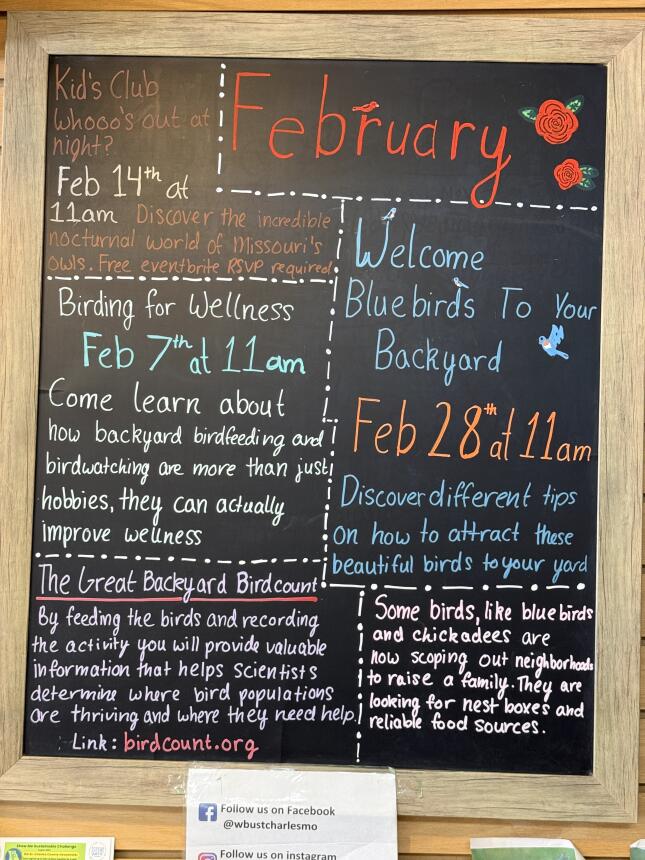 February
Kid's Club
Whooo's out at
night?
Feb 14th at
11am Discover the incredible
nocturnal world of Missouri's
owls. Free eventbrite RSVP required
Birding for Wellness
Feb 7th at 11am
Come learn about
how backyard birdfeeding and
birdwatching are more than just
hobbies, they can actually
improve wellness
The Great Backyard Birdcount
By feeding the birds and recording
the activity you will provide valuable
information that helps Scientists
determine where bird populations
are thriving and where they need help.
Link: birdcount.org
Welcome
Bluebirds To Your
Backyard
Feb 28th at 11am
Discover different tips
on how to attract these
beautiful birds to your yard
Some birds, like bluebirds
and chickadees are
now scoping out neighborhoods
to raise a family. They are
looking for nest boxes and
reliable food sources.
Follow us on Facebook
@wbustcharlesmo
Follow us on instagram